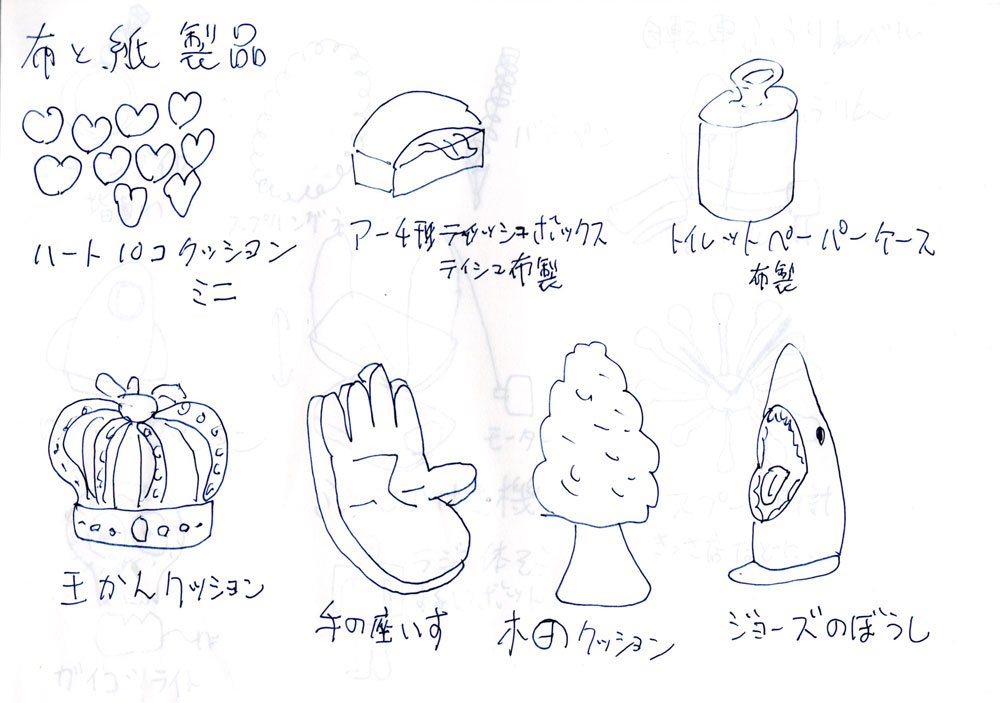 布と紙製品
ハート10コクッション
ミニ
アーチ形ティッシュボックス
ティシュ布製
トイレットペーパーケース
布製
王かんクッション
手の座いす
木のクッション
ジョーズのぼうし